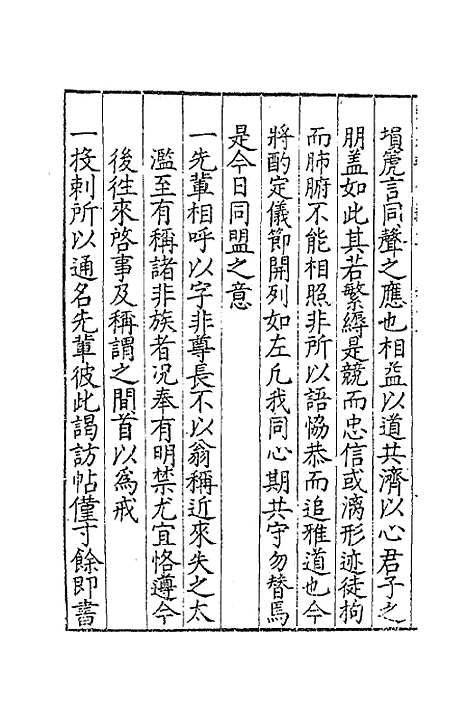 塤箎言同聲之應也相益以道共濟以心君子之
朋盖如此其若繁縟是競而忠信或漓形迹徒拘
而肺腑不能相照非所以語恊恭而追雅道也今
將酌定儀節開列如左凡我同心期共守勿替焉
是今日同盟之意
一先輩相呼以字非尊長不以翁稱近來失之太
濫至有稱諸非族者况奉有明禁尤宜恪遵今
後徃來啓事及稱謂之間首以爲戒
一投剌所以通名先輩彼此謁訪帖僅寸餘即書